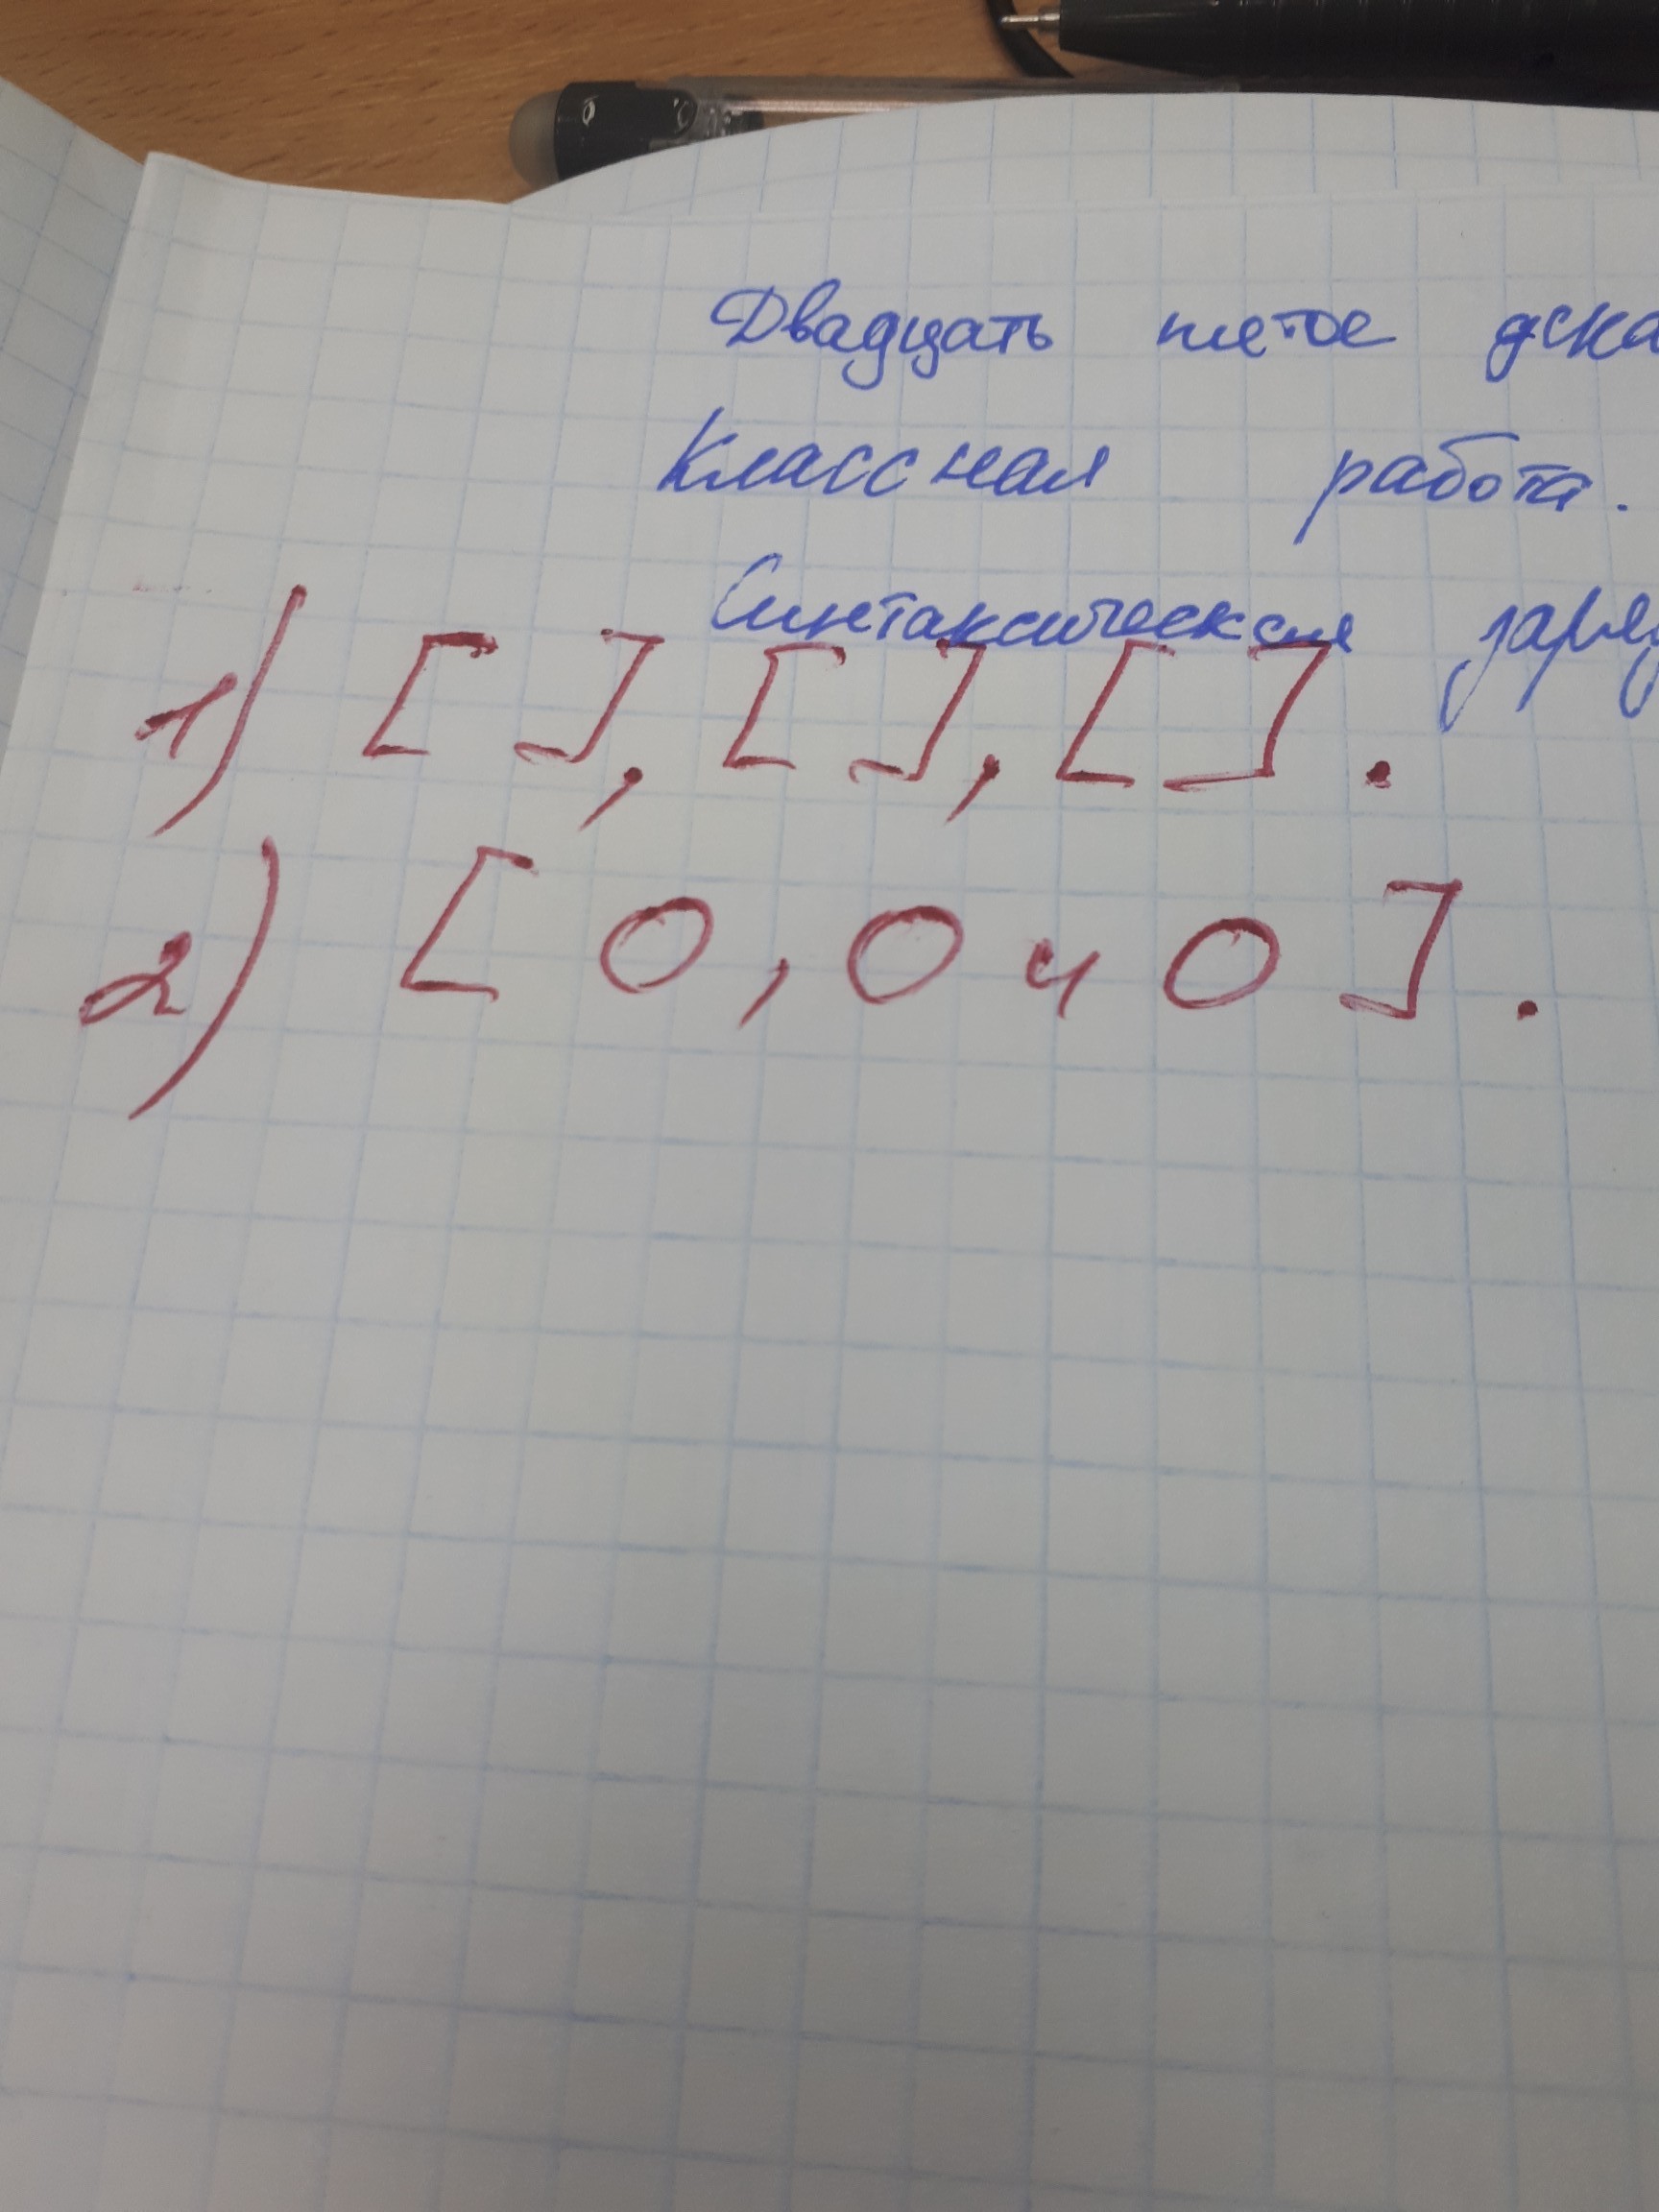 Двадцать пятое дека
Классная работа.
Синтаксическая заряд
1) [ ], [ ], [ ].
2) [ О, О и О ].